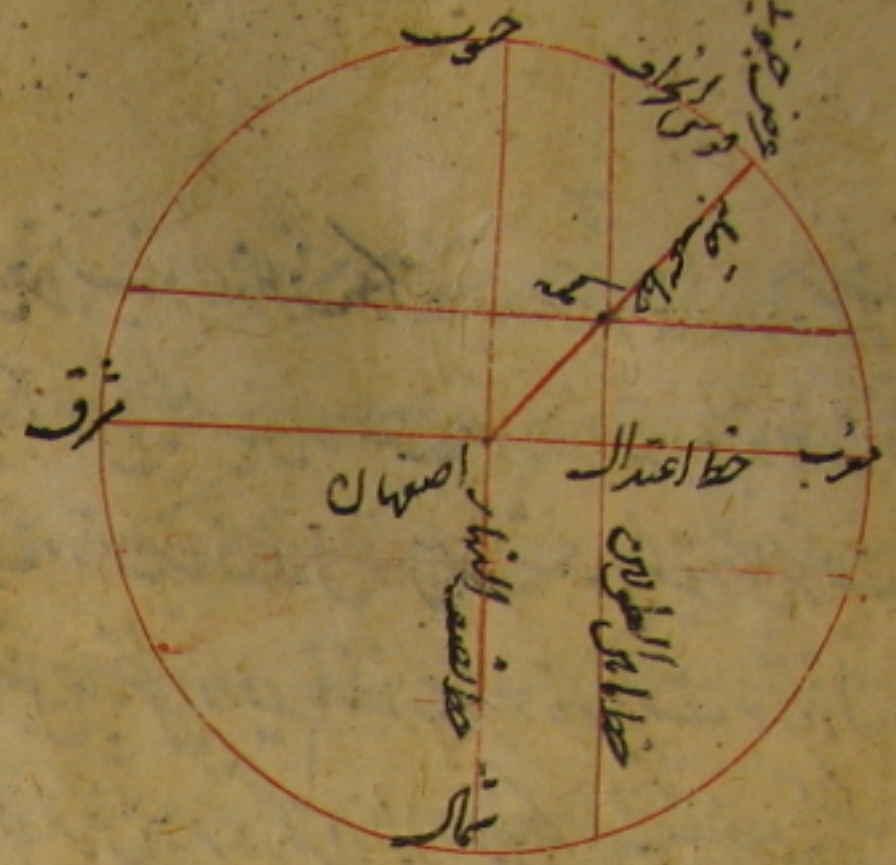 جنوب
قوس انحراف
خط سمت قبله
مکه
مشرق
خط اعتدال
مغرب
اصفهان
خط نصف النهار
خط مابین الطولین
شمال